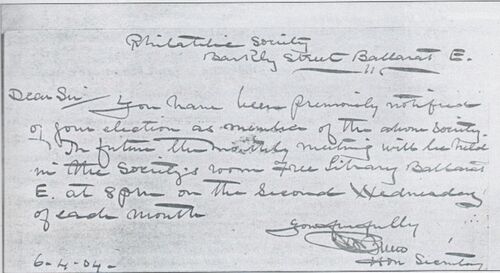 Philatelic Society
Barkly Street Ballarat E.
Dear Sir
You have been previously notified
of your election as member of the above Society.
In future the monthly meeting will be held
in the Society's room Free Library Ballarat
E. at 8 pm on the Second Wednesday
of each month
Yours faithfully
Hon Secretary
6-4-04-